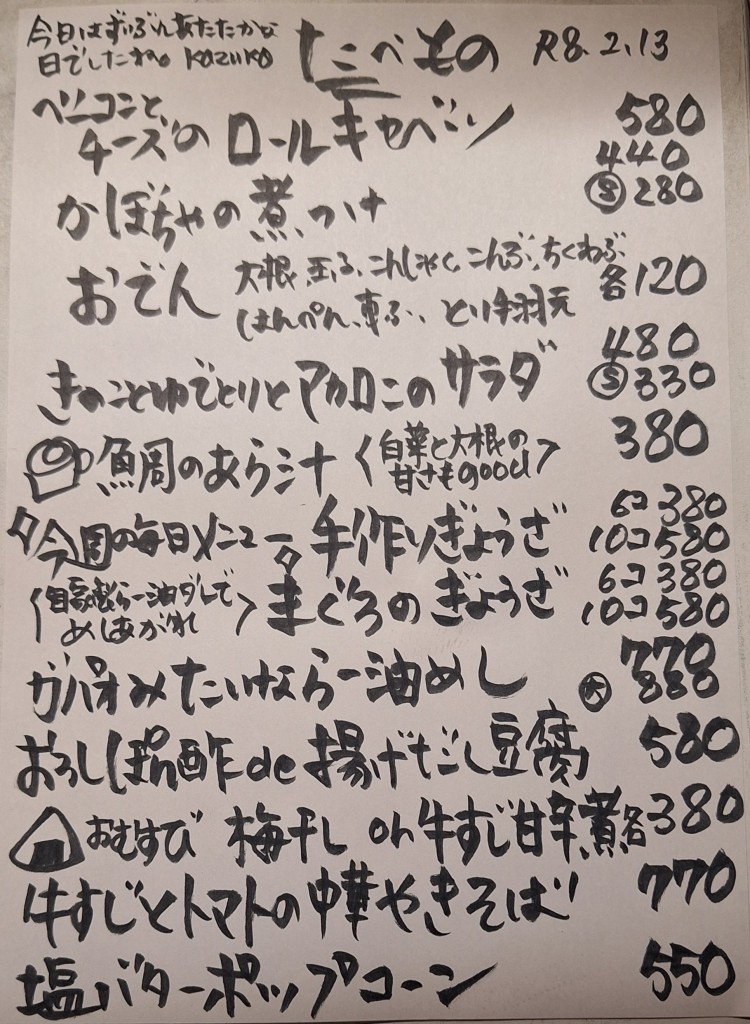 今日はずいぶんあたたかな
日でしたね。KAZUKO
たべもの R8.2.13
ベーコンと、
チーズのロールキャベツ 580
440
かぼちゃの煮つけ Ⓢ280
おでん 大根、玉子、こんにゃく、こんぶ、ちくわぶ
はんぺん、車ふ、とり手羽元 各120
480
きのことゆでとりとマカロニのサラダ Ⓢ330
魚周のあら汁 〈白菜と大根の
甘さもgood〉 380
今週の毎日メニュー 手作りぎょうざ 6コ380
10コ580
〈自家製らー油ダレで
めしあがれ〉 まぐろのぎょうざ 6コ380
10コ580
ガパオみたいならー油めし 770
大880
おろしぽん酢de揚げだし豆腐 580
おむすび 梅干し or 牛すじ甘辛煮 各380
牛すじとトマトの中華やきそば 770
塩バターポップコーン 550